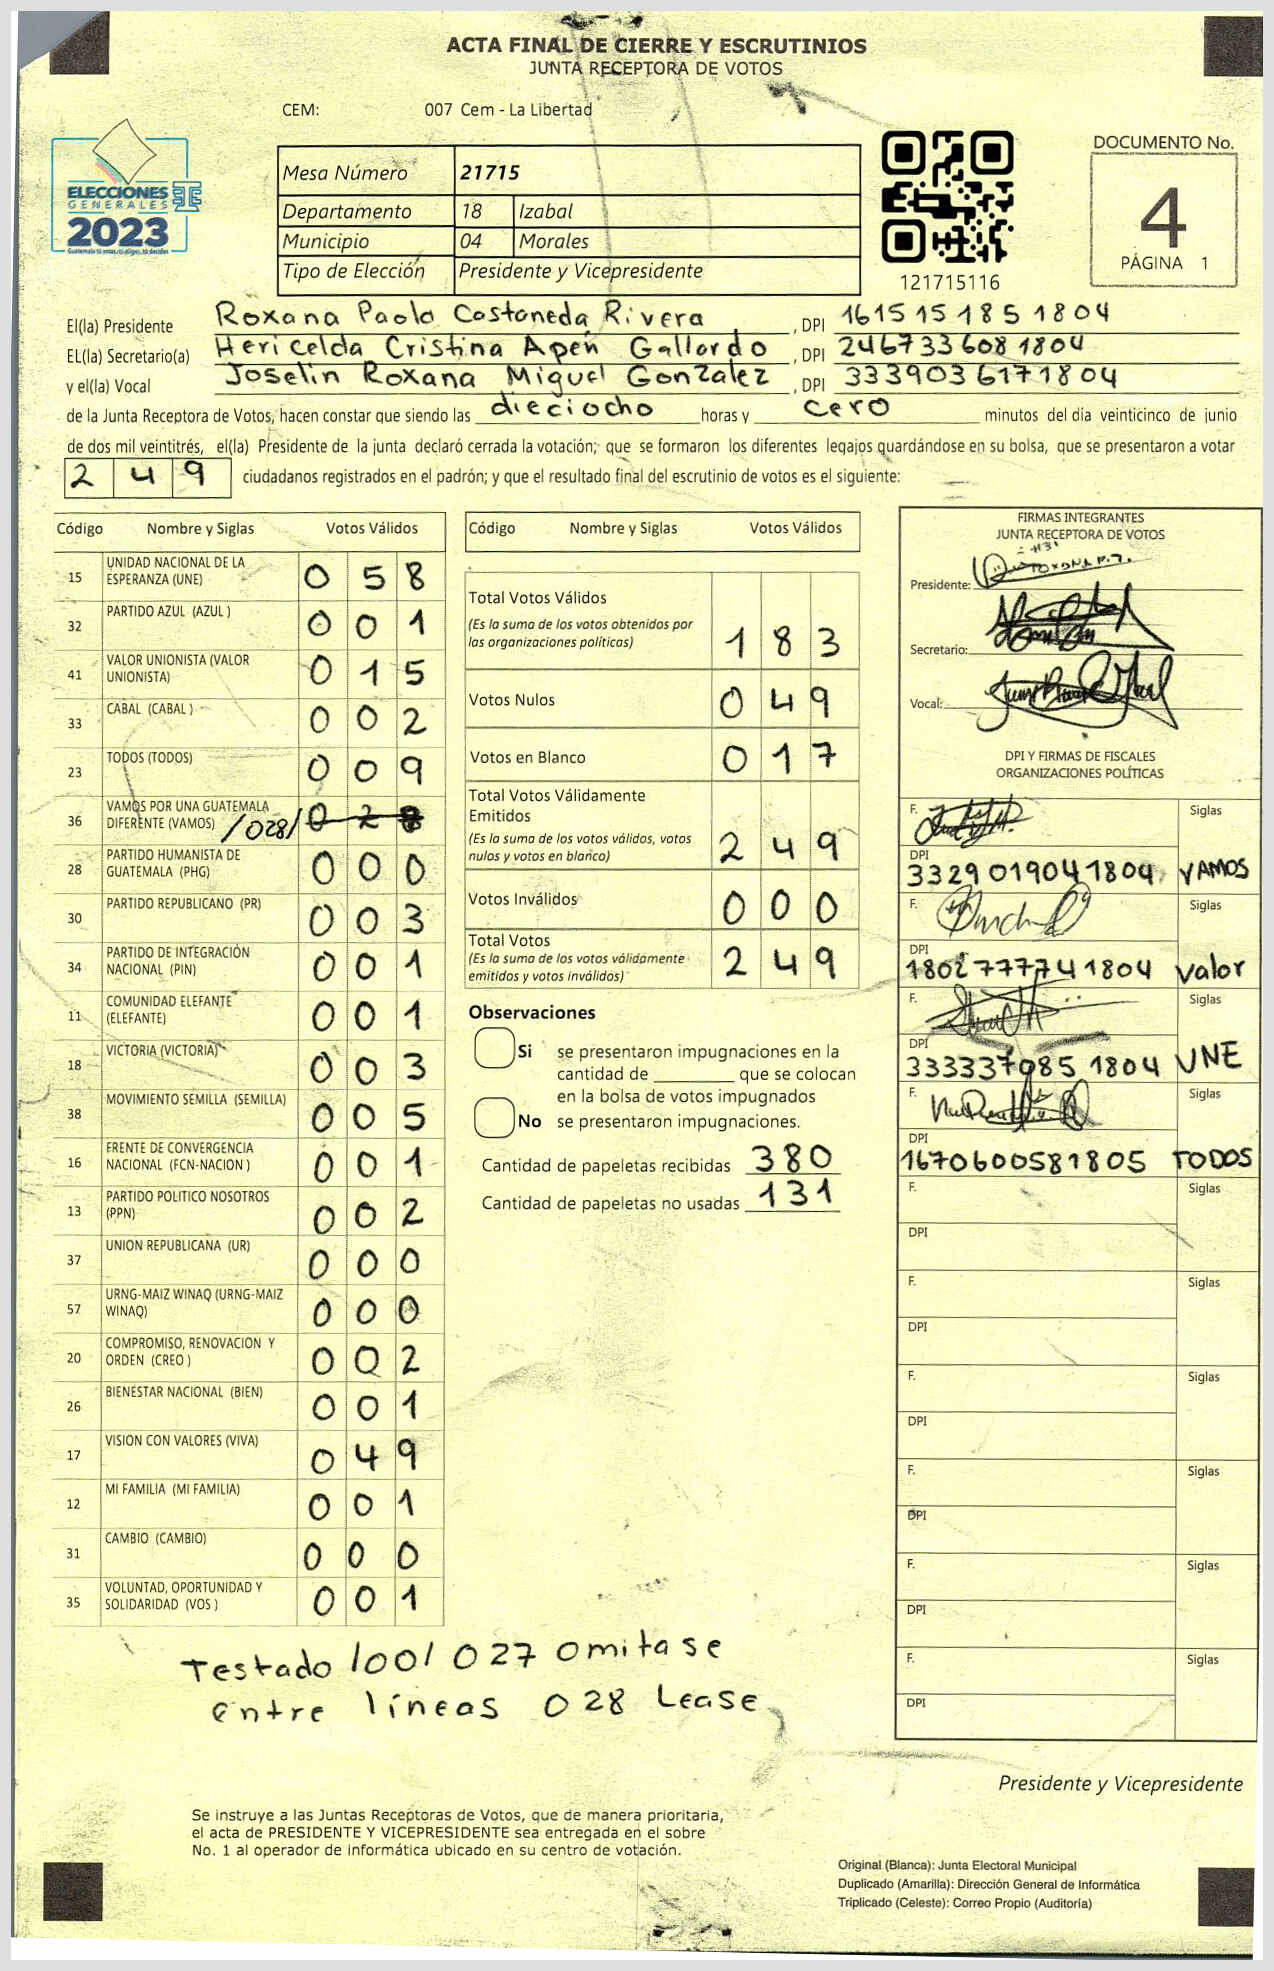 ACTA FINAL DE CIERRE Y ESCRUTINIOS
JUNTA RECEPTORA DE VOTOS
CEM: 007 Cem - La Libertad
ELECCIONES
GENERALES
2023
Mesa Número 21715
Departamento 18 Izabal
Municipio 04 Morales
Tipo de Elección Presidente y Vicepresidente
121715116
DOCUMENTO No.
4
PÁGINA 1
El(la) Presidente Roxana Paola Castaneda Rivera, DPI 1615151851804
EL(la) Secretario(a) Hericelda Cristina Apen Gallardo, DPI 2467336081804
y el(la) Vocal Joselin Roxana Miguel Gonzalez, DPI 3339036171804
de la Junta Receptora de Votos, hacen constar que siendo las dieciocho horas y cero minutos del día veinticinco de junio
de dos mil veintitrés, el(la) Presidente de la junta declaró cerrada la votación; que se formaron los diferentes legajos guardándose en su bolsa, que se presentaron a votar
2 4 9 ciudadanos registrados en el padrón; y que el resultado final del escrutinio de votos es el siguiente:
Código Nombre y Siglas Votos Válidos
15 UNIDAD NACIONAL DE LA
ESPERANZA (UNE) 0 5 8
32 PARTIDO AZUL (AZUL ) 0 0 1
41 VALOR UNIONISTA (VALOR
UNIONISTA) 0 1 5
33 CABAL (CABAL ) 0 0 2
23 TODOS (TODOS) 0 0 9
36 VAMOS POR UNA GUATEMALA
DIFERENTE (VAMOS) /028/
28 PARTIDO HUMANISTA DE
GUATEMALA (PHG) 0 0 0
30 PARTIDO REPUBLICANO (PR) 0 0 3
34 PARTIDO DE INTEGRACIÓN
NACIONAL (PIN) 0 0 1
11 COMUNIDAD ELEFANTE
(ELEFANTE) 0 0 1
18 VICTORIA (VICTORIA) 0 0 3
38 MOVIMIENTO SEMILLA (SEMILLA) 0 0 5
16 FRENTE DE CONVERGENCIA
NACIONAL (FCN-NACION ) 0 0 1
13 PARTIDO POLITICO NOSOTROS
(PPN) 0 0 2
37 UNION REPUBLICANA (UR) 0 0 0
57 URNG-MAIZ WINAQ (URNG-MAIZ
WINAQ) 0 0 0
20 COMPROMISO, RENOVACION Y
ORDEN (CREO ) 0 0 2
26 BIENESTAR NACIONAL (BIEN) 0 0 1
17 VISION CON VALORES (VIVA) 0 4 9
12 MI FAMILIA (MI FAMILIA) 0 0 1
31 CAMBIO (CAMBIO) 0 0 0
35 VOLUNTAD, OPORTUNIDAD Y
SOLIDARIDAD (VOS ) 0 0 1
Testado /00/ 027 Omitase
Entre líneas 028 Lease
Código Nombre y Siglas Votos Válidos
Total Votos Válidos
(Es la suma de los votos obtenidos por
las organizaciones políticas) 1 8 3
Votos Nulos 0 4 9
Votos en Blanco 0 1 7
Total Votos Válidamente
Emitidos
(Es la suma de los votos válidos, votos
nulos y votos en blanco) 2 4 9
Votos Inválidos 0 0 0
Total Votos
(Es la suma de los votos válidamente
emitidos y votos inválidos) 2 4 9
Observaciones
Si se presentaron impugnaciones en la
cantidad de ________ que se colocan
en la bolsa de votos impugnados
No se presentaron impugnaciones.
Cantidad de papeletas recibidas 380
Cantidad de papeletas no usadas 131
FIRMAS INTEGRANTES
JUNTA RECEPTORA DE VOTOS
Presidente:
Secretario:
Vocal:
DPI Y FIRMAS DE FISCALES
ORGANIZACIONES POLÍTICAS
F. Siglas
DPI
3329019041804 VAMOS
F. Siglas
DPI
1802777741804 Valor
F. Siglas
DPI
3333370851804 UNE
F. Siglas
DPI
1670600581805 TODOS
F. Siglas
DPI
F. Siglas
DPI
F. Siglas
DPI
F. Siglas
DPI
F. Siglas
DPI
F. Siglas
DPI
Presidente y Vicepresidente
Se instruye a las Juntas Receptoras de Votos, que de manera prioritaria,
el acta de PRESIDENTE Y VICEPRESIDENTE sea entregada en el sobre
No. 1 al operador de informática ubicado en su centro de votación.
Original (Blanca): Junta Electoral Municipal
Duplicado (Amarilla): Dirección General de Informática
Triplicado (Celeste): Correo Propio (Auditoría)